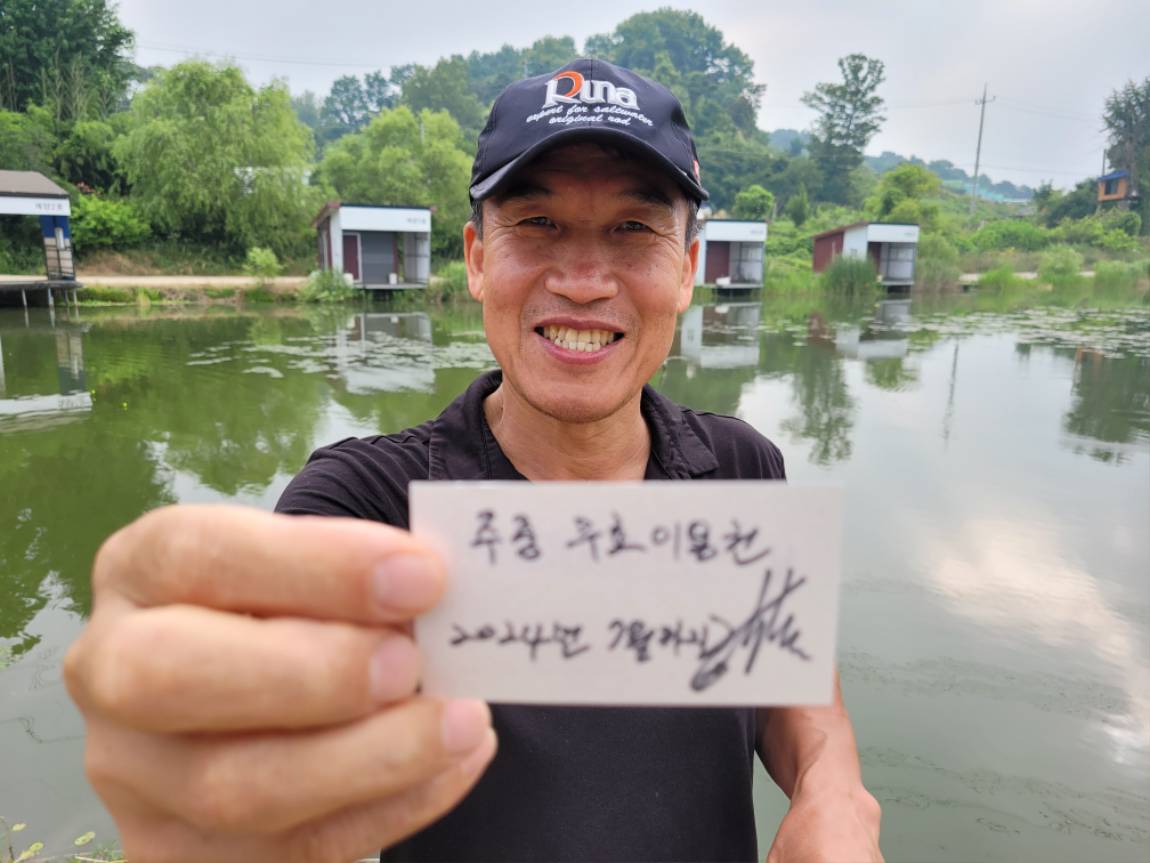 Runa
expert for saltwater
original rod
주중 무호 이용헌
2024년 7월